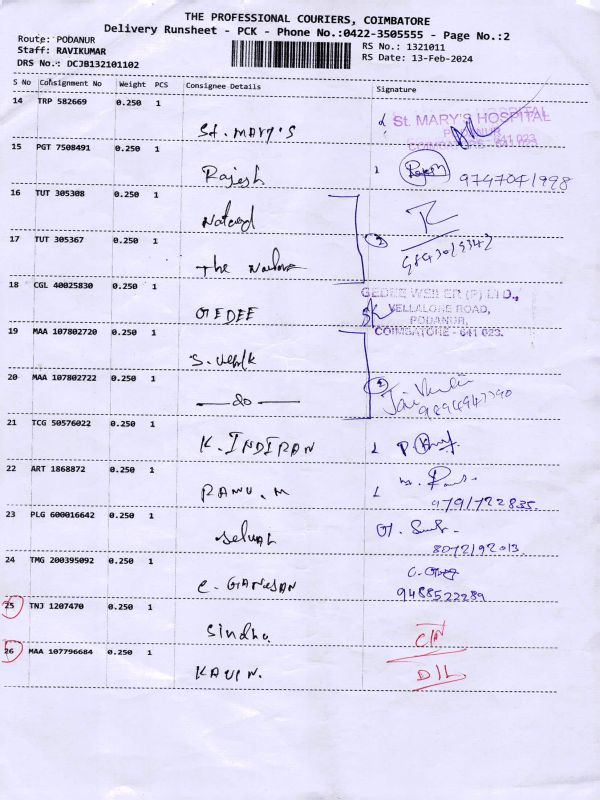 THE PROFESSIONAL COURIERS, COIMBATORE
Delivery Runsheet - PCK - Phone No.:0422-3505555 - Page No.:2
Route: PODANUR
RS No.: 1321011
Staff: RAVIKUMAR
RS Date: 13-Feb-2024
DRS No.: DCJB132101102
S No Consignment No Weight PCS Consignee Details Signature
14 TRP 582669 0.250 1
St. MARY'S
St. MARY'S HOSPITAL
PODANUR
COIMBATORE - 641 023
15 PGT 7508491 0.250 1
Rajesh
Rajesh
9747041998
16 TUT 305308 0.250 1
17 TUT 305367 0.250 1
The
18 CGL 40025830 0.250 1
GEDEE
GEDEE WEILER (P) LTD.,
VELLALORE ROAD,
PODANUR,
COIMBATORE - 641 023.
19 MAA 107802720 0.250 1
20 MAA 107802722 0.250 1
do
21 TCG 50576022 0.250 1
K. INDIRAN
22 ART 1868872 0.250 1
RAMU. M
9791722835
23 PLG 600016642 0.250 1
Selval
8072192013
24 TMG 200395092 0.250 1
C. GANESAN
9488522289
25 TNJ 1207470 0.250 1
Sindhu
26 MAA 107796684 0.250 1
KAVIN.
D/L